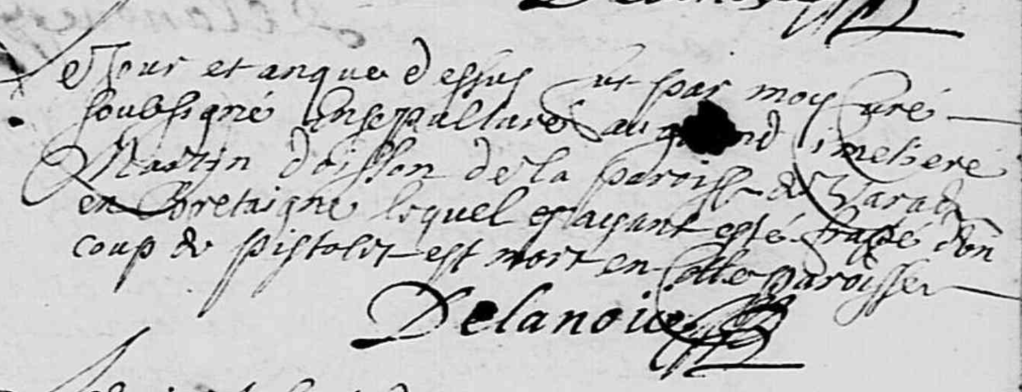 Delanoue
Jour et an que dessus fut par moy Curé
soubsigné ensepulturé au grand Cimetiere
Martin Doisson de la paroisse de Varades
en Bretaigne lequel estant esté frapé d'un
coup de pistolet est mort en cette paroisse
Delanoue